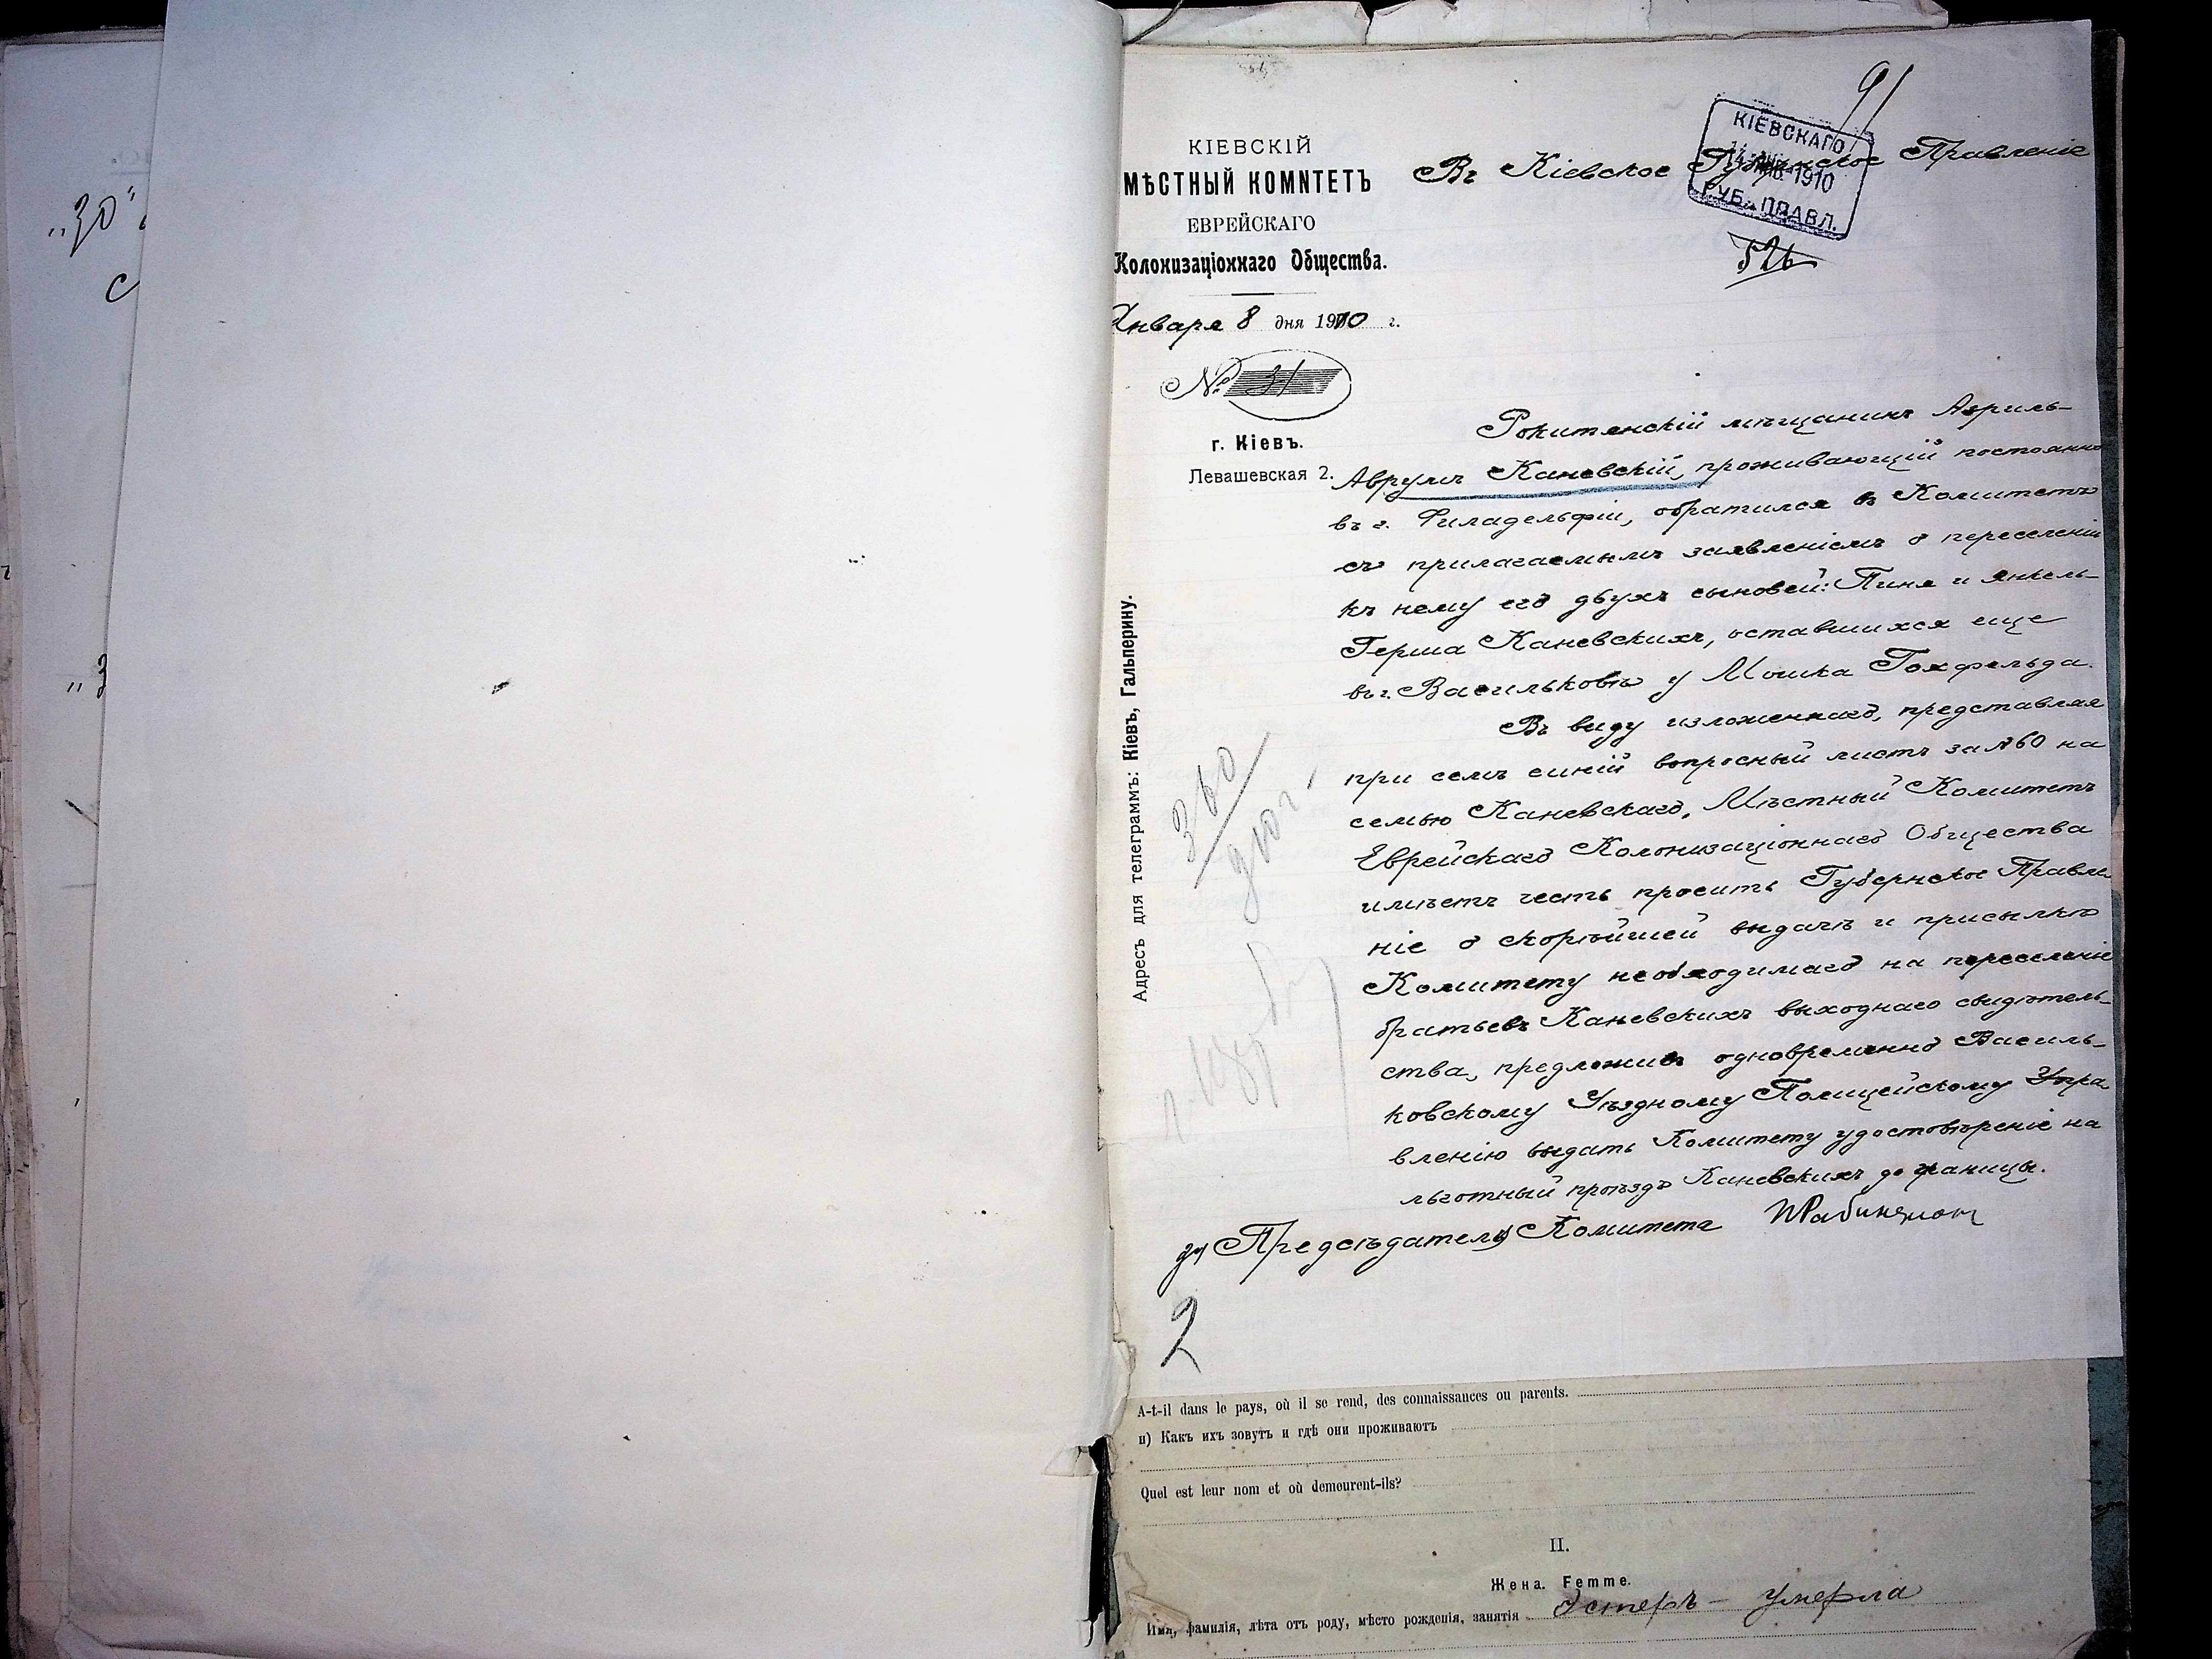 „30“
с
„3
91
КІЕВСКІЙ
МѢСТНЫЙ КОМИТЕТЪ
ЕВРЕЙСКАГО
Колонизаціоннаго Общества.
Января 8 дня 1910 г.
№ 31
г. Кіевъ.
Левашевская 2.
Адресъ для телеграммъ: Кіевъ, Гальперину.
Въ Кіевское Губернское Правленіе
КІЕВСКАГО
1910
ГУБ. ПРАВЛ.
526
Рокитянскій мѣщанинъ Азриль-
Аврумъ Каневскій, проживающій постоянно
въ г. Филадельфіи, обратился въ Комитетъ
съ прилагаемымъ заявленіемъ о переселеніи
къ нему его двухъ сыновей: Пиня и Янкель-
Герша Каневскихъ, оставшихся еще
въ г. Васильковѣ у Мошка Гохфельда.
Въ виду изложеннаго, представляя
при семъ синій вопросный листъ за № 60 на
семью Каневскаго, Мѣстный Комитетъ
Еврейскаго Колонизаціоннаго Общества
имѣетъ честь просить Губернское Правле
ніе о скорѣйшей выдачѣ и присылкѣ
Комитету необходимаго на переселеніе
братьевъ Каневскихъ выходнаго свидѣтель-
ства, предложивъ одновременно Василь-
ковскому Уѣздному Полицейскому Упра
вленію выдать Комитету удостовѣреніе на
льготный проѣздъ Каневскихъ до границы.
за Предсѣдателя Комитета
360
2
A-t-il dans le pays, où il se rend, des connaissances ou parents.
п) Какъ ихъ зовутъ и гдѣ они проживаютъ
Quel est leur nom et où demeurent-ils?
II.
Жена. Femme.
Имя, фамилія, лѣта отъ роду, мѣсто рожденія, занятія Эстеръ – умерла